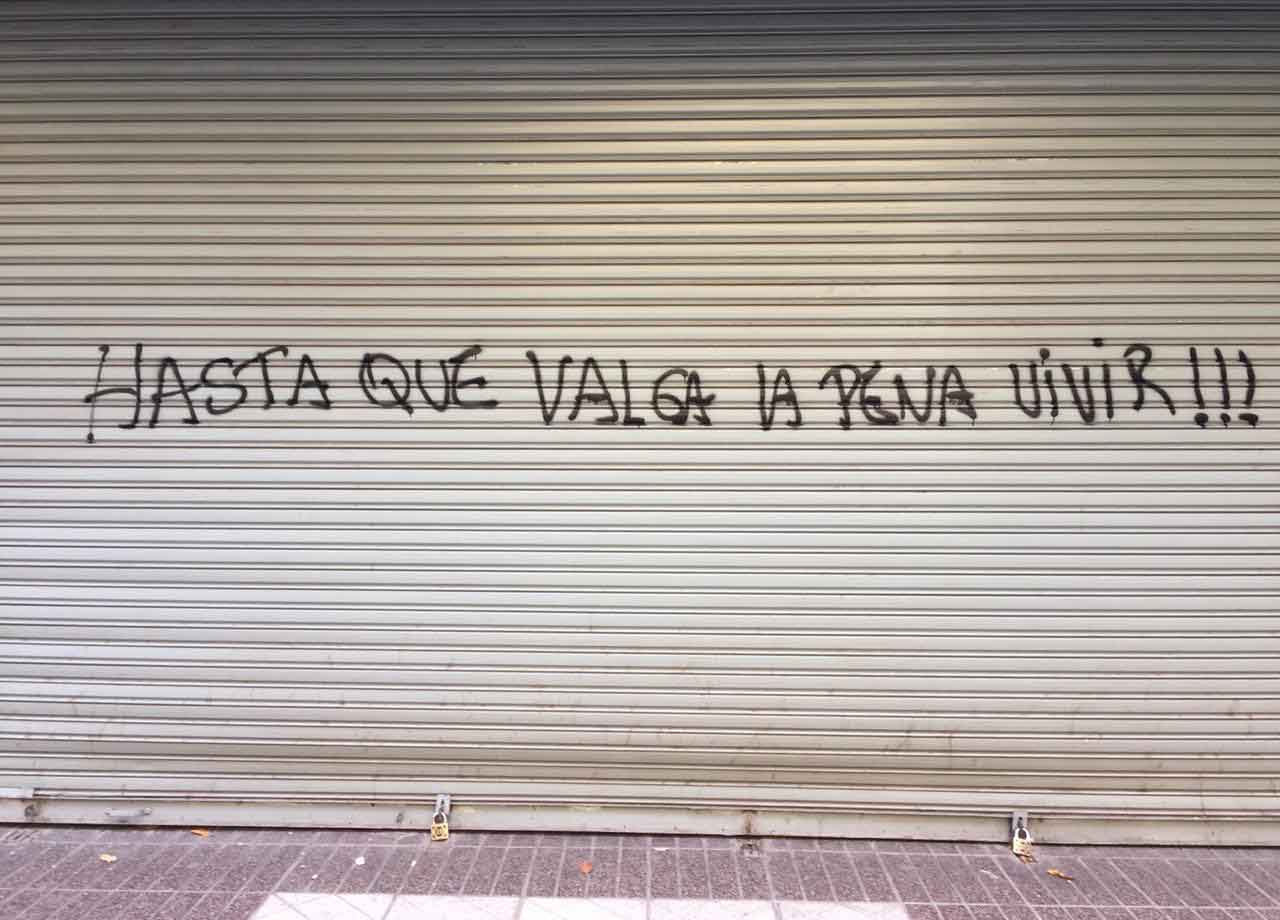 HASTA QUE VALGA LA PENA ViViR!!!